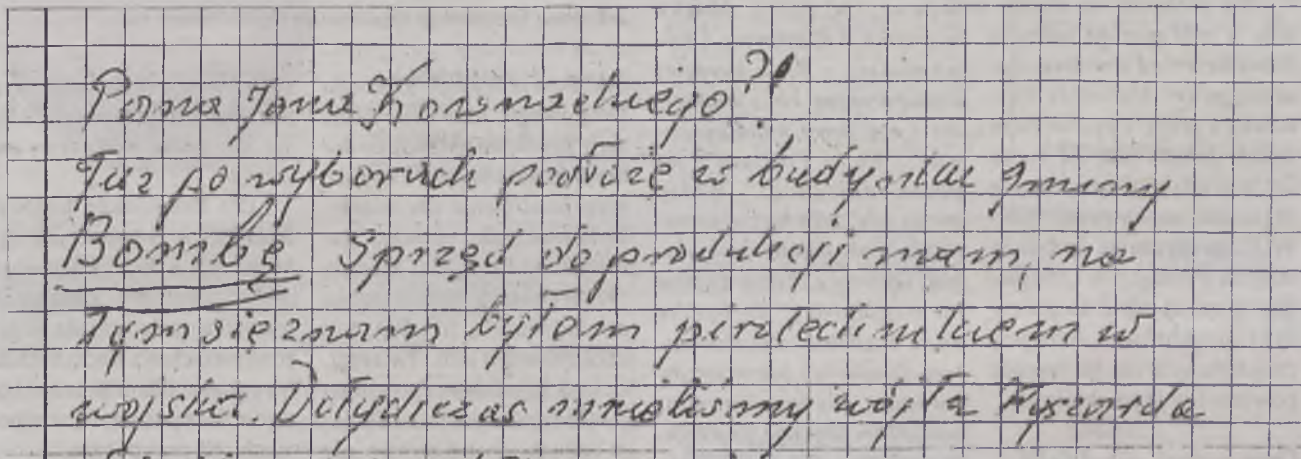 Pana Jana Korsnackiego?!
Tuż po wyborach podłożę w budynku gminy
Bombę Sprzęd do produkcji mam, na
tym się znam byłem pirotechnikiem w
wojsku. Dotychczas mieliśmy wójta Ryszarda